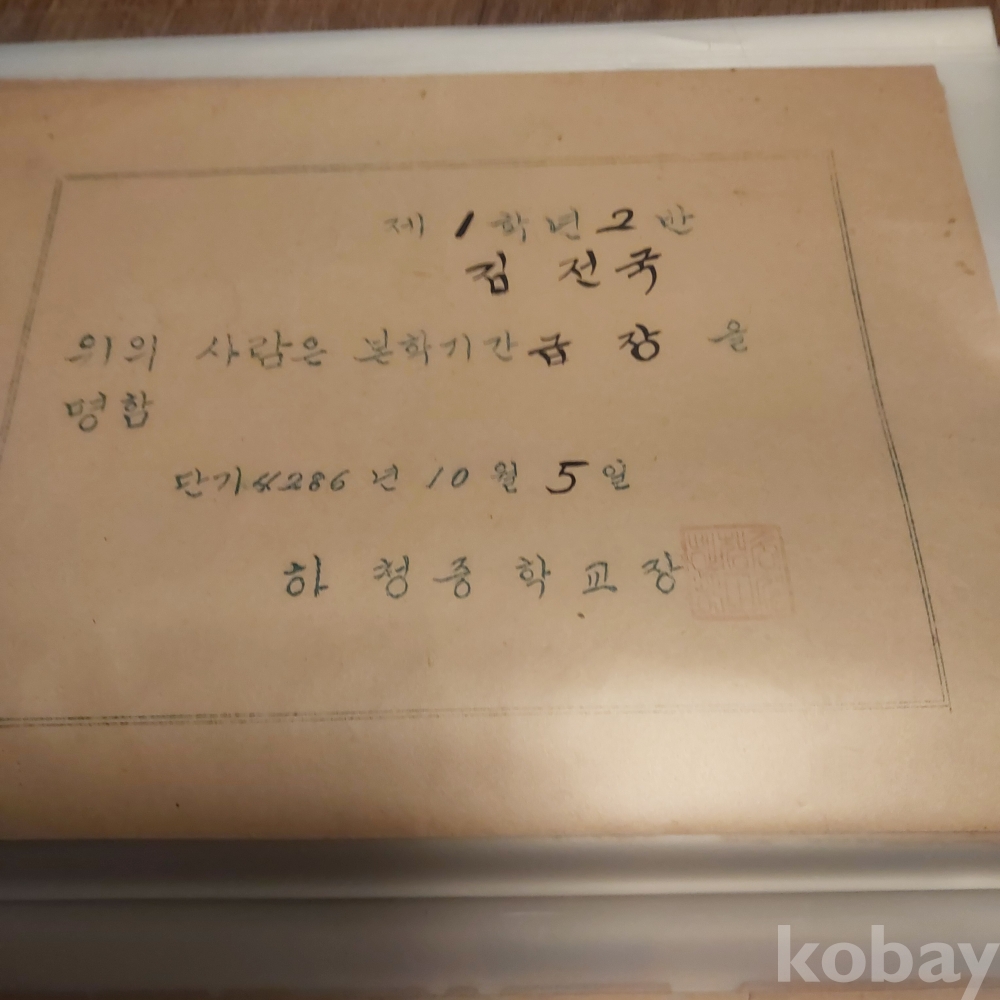 제 1 학년 2 반
김 전국
위의 사람은 본학기간 급 장 을
명함
단기 4286 년 10 월 5 일
하 청 중 학 교 장
kobay